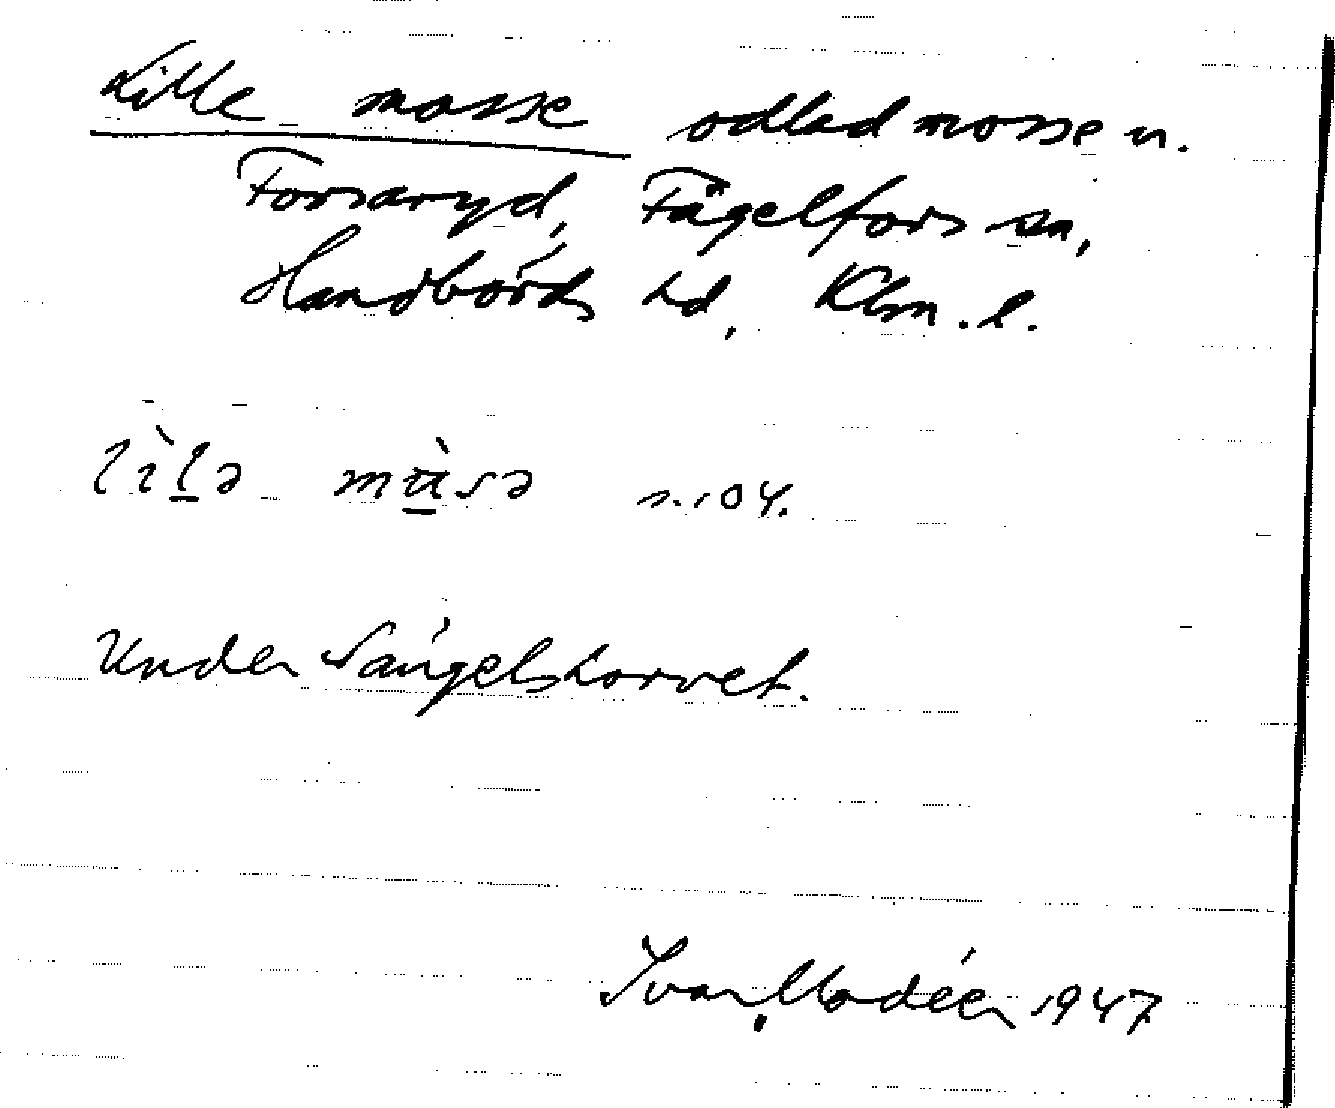 Lille mosse odlad mosse n.
Forsaryd, Fågelfors sn,
Handbörds hd, Klm. l.
lìlə mɑ̀sə s. 104.
Under
Ivar Modéer 1947